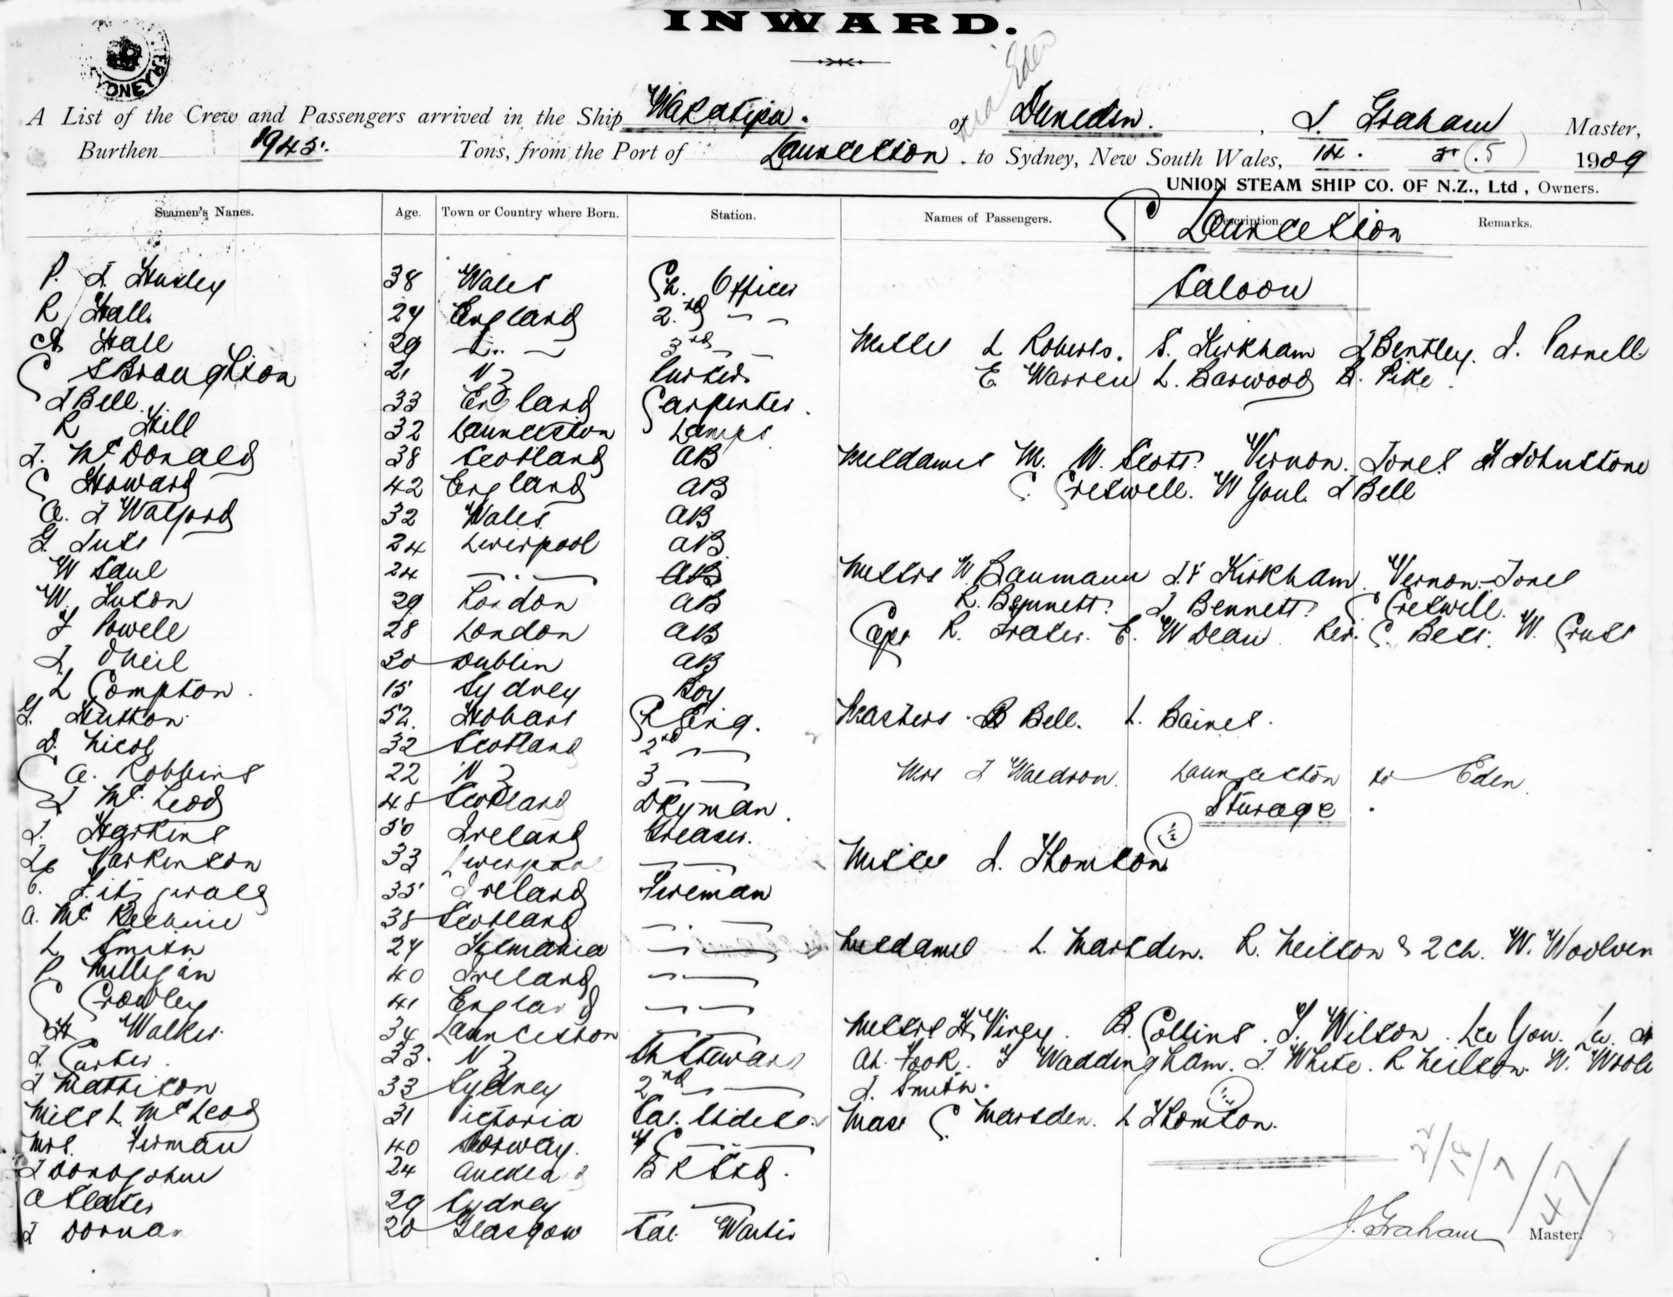 INWARD.
via Eden
A List of the Crew and Passengers arrived in the Ship Wakatipu. of Dunedin. , J. Graham Master,
Burthen 1945. Tons, from the Port of Launceston. to Sydney, New South Wales, 14. 5 (.5) 1909
UNION STEAM SHIP CO. OF N.Z., Ltd, Owners.
Seamen's Names. Age. Town or Country where Born. Station. Names of Passengers. Description Remarks.
Launceston
Saloon
P. J. Huxley 38 Wales Ch. Officer
R Hall 27 England 2nd — —
A Hall 29 — " — 3rd — —
C S Broughton 21 N Z Purser
J Bell 33 England Carpenter.
R Hill 32 Launceston Lamps
J. McDonald 38 Scotland AB
C Howard 42 England AB
A. J Watford 32 Wales AB
G. 24 Liverpool AB
W Saul 24 — . — AB
W. Luton 29 London AB
J Powell 28 London AB
J. ONeil 30 Dublin AB
L Compton. 15 Sydney Boy
G. Hutton 52. Hobart C Eng.
D. Nicol 32 Scotland 2nd —
C A. Robbins 22 N Z 3 — —
J McLeod 48 Scotland Dkyman.
J. Harkins 50 Ireland Greaser.
Parkinson 33 Liverpool — —
C. Fitzgerald 35 Ireland Fireman
A. Mc 38 Scotland — . —
L Smith 27 Tasmania — . —
P. Milligan 40 Ireland — —
C Crowley 41 England — —
H Walker 34 Launceston — —
J. Carter. 33. N Z Ch Steward
J Mathison 33 Sydney 2nd — —
Miss L. McLeod 31 Victoria Sal. Stdess.
Mrs. Firman 40 Norway. F C — —
J Donoghue 24 Auckland B R Std.
A Slater 29 Sydney — —
J Dornan 20 Glasgow Sal. Waiter
Misses L Roberts. S. Kirkham J Bentley. J. Parnell
E Warren L. Barwood B. Pike.
Mesdames M. W. Scott. Vernon. Jones H Johnstone
C. Creswell. W Youl. J Bell
Messrs W. Baumann J. F Kirkham. Vernon-Jones
R. Bennett. J Bennett. C Creswell.
Capt R. Frater. E. W Dean Rev. C. Bett. W. Cruts
Masters. B Bell. L. Baines.
Mrs J Waldron. Launceston to Eden.
Steerage.
Misses J. Thomson
Mesdames L. Marsden. R. Neilson & 2 ch. W. Woolven
Messrs H. Virey. B. Collins. J. Wilson. Lee You.
Ah Fook. F Waddingham. J White. R Neilson. W.
J. Smith.
Mast C. Marsden. L Thomson.
22/18/7/47
J. Graham Master.